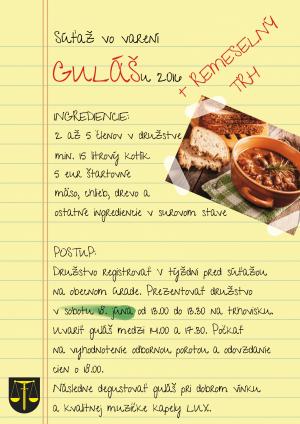 Súťaž vo varení
GULÁŠu 2016
+ REMESELNÝ
TRH
INGREDIENCIE:
2 až 5 členov v družstve
min. 15 litrový kotlík
5 eur štartovné
mäso, chlieb, drevo a
ostatné ingrediencie v surovom stave
POSTUP:
Družstvo registrovať v týždni pred súťažou
na obecnom úrade. Prezentovať družstvo
v sobotu 18. júna od 13.00 do 13.30 na trhovisku.
Uvariť guláš medzi 14.00 a 17.30. Počkať
na vyhodnotenie odbornou porotou a odovzdanie
cien o 18.00.
Následne degustovať guláš pri dobrom vínku
a kvalitnej muzičke kapely LUX.